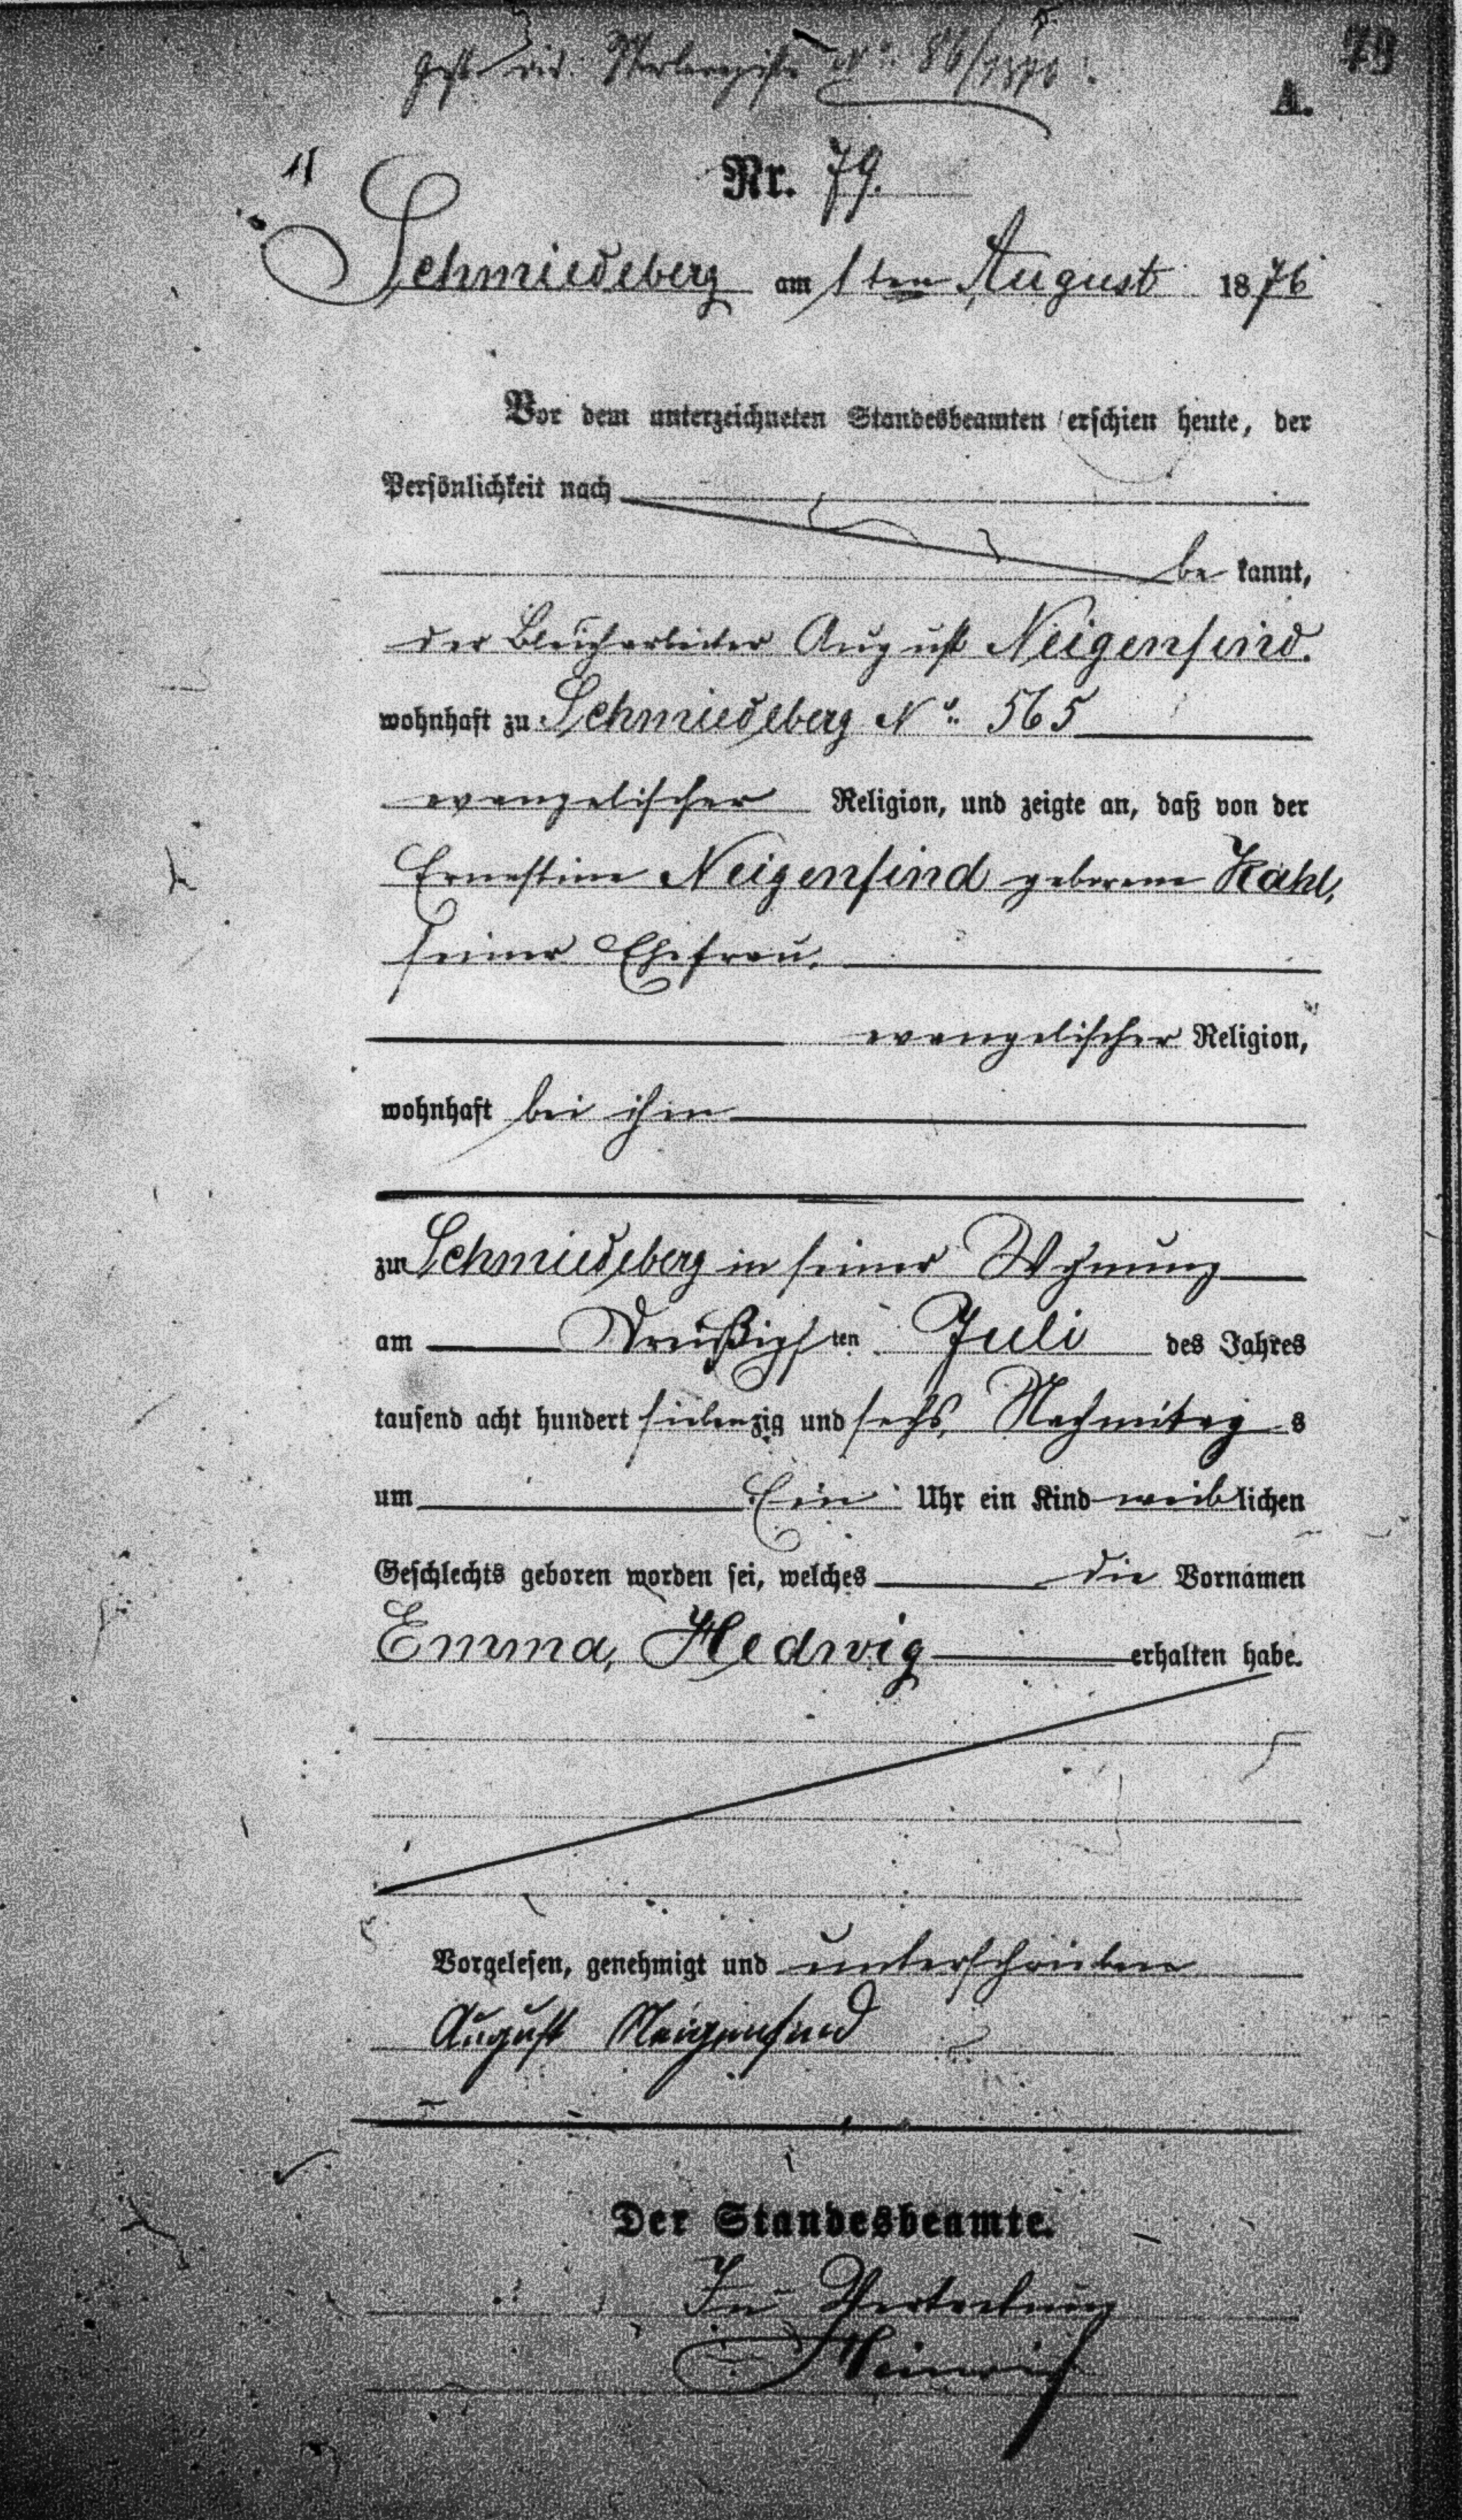 79
gest. vid. Sterberegister No: 86/1876.
A.
Nr. 79.
Schmiedeberg am 1ten August 1876
Vor dem unterzeichneten Standesbeamten erschien heute, der
Persönlichkeit nach
be kannt,
der Bleicharbeiter August Neigenfind.
wohnhaft zu Schmiedeberg No: 565
evangelischer Religion, und zeigte an, daß von der
Ernestine Neigenfind geborene Kahl,
seiner Ehefrau,
evangelischer Religion,
wohnhaft bei ihm
zu Schmiedeberg in seiner Wohnung
am Dreißigsten Juli des Jahres
tausend acht hundert siebenzig und sechs, Nachmittag s
um Ein Uhr ein Kind weiblichen
Geschlechts geboren worden sei, welches die Vornamen
Emma, Hedwig erhalten habe.
Vorgelesen, genehmigt und unterschrieben
August Neigenfind
Der Standesbeamte.
In Vertretung